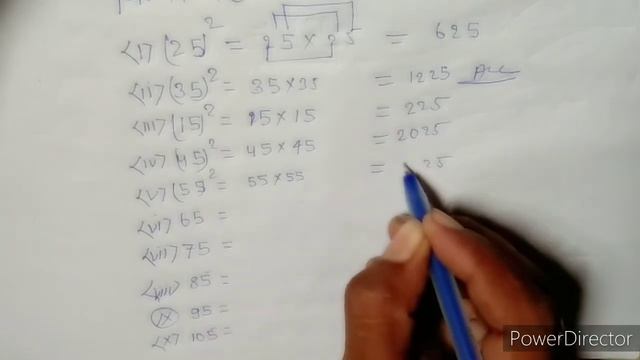 <i> (25)² = 25 × 25 = 625
<ii> (35)² = 35×35 = 1225
<iii> (15)² = 15 × 15 = 225
<iv> (45)² = 45 × 45 = 2025
<v> (55)² = 55 × 55 = 25
<vi> 65 =
<vii> 75 =
<viii> 85 =
(ix) 95 =
<x> 105 =
PowerDirector